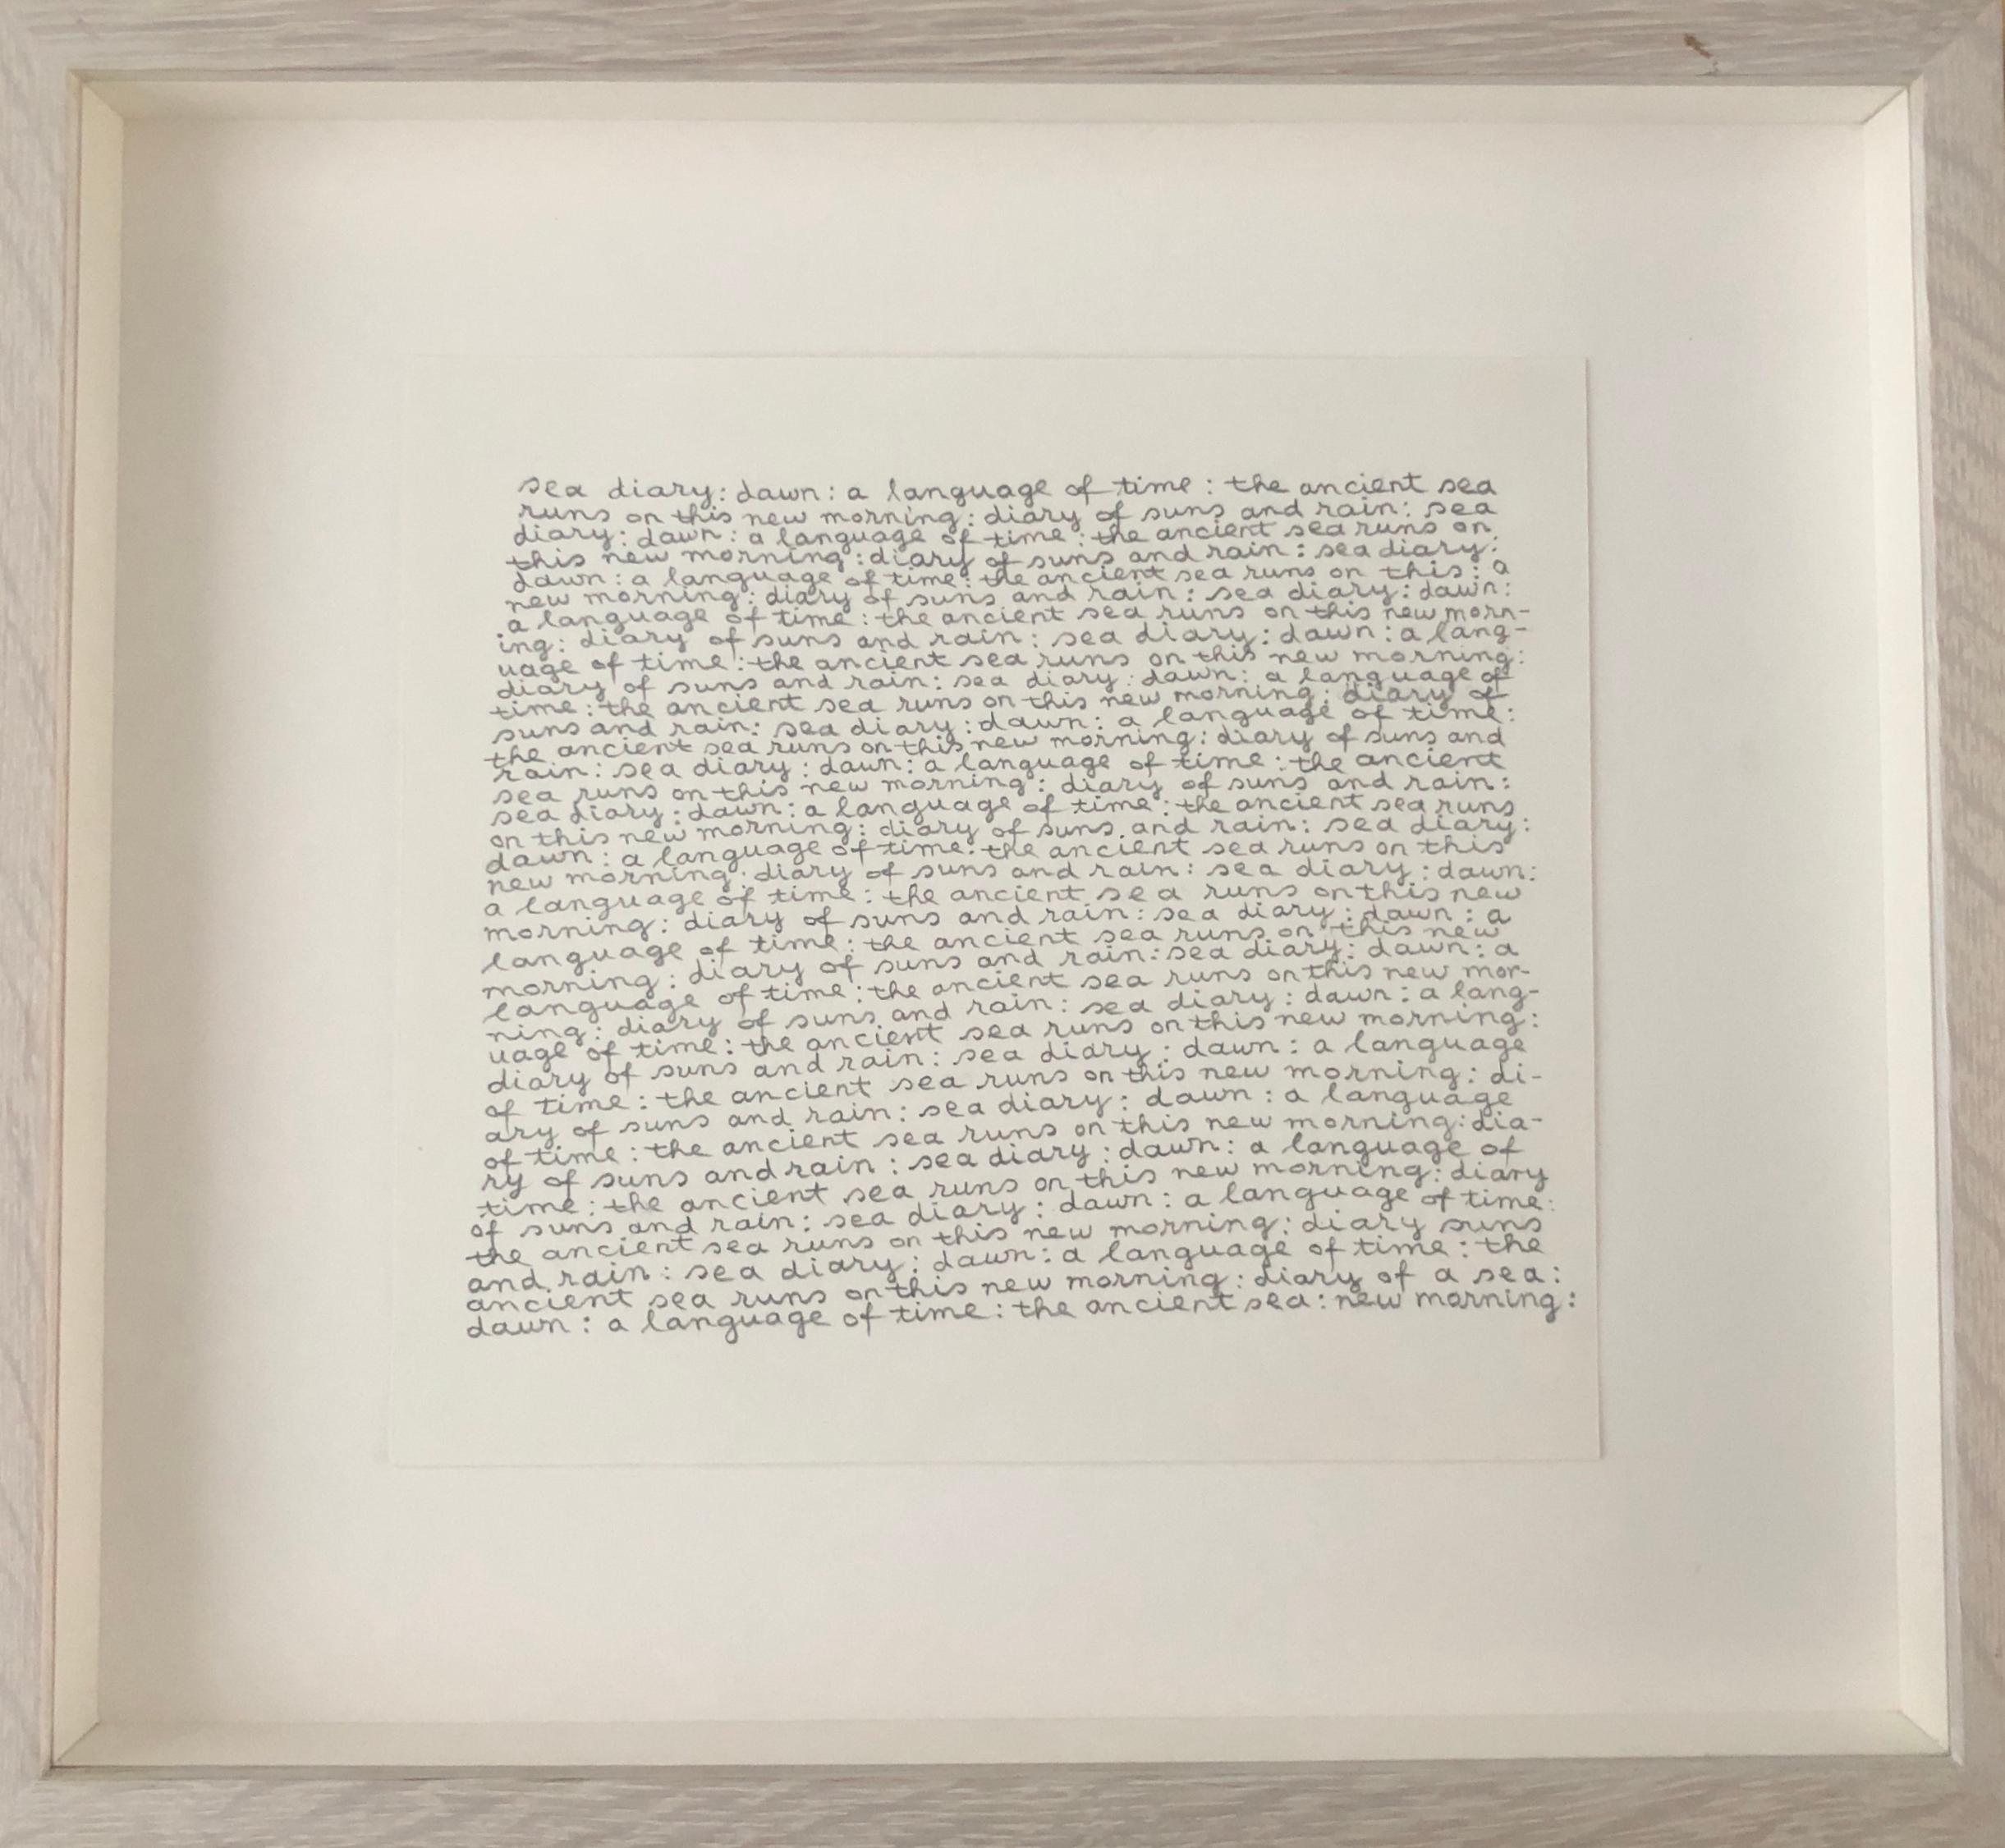 sea diary: dawn: a language of time: the ancient sea
runs on this new morning: diary of suns and rain: sea
diary: dawn: a language of time: the ancient sea runs on
this new morning: diary of suns and rain: sea diary:
dawn: a language of time: the ancient sea runs on this: a
new morning: diary of suns and rain: sea diary: dawn:
a language of time: the ancient sea runs on this new morn-
ing: diary of suns and rain: sea diary: dawn: a lang-
uage of time: the ancient sea runs on this new morning:
diary of suns and rain: sea diary: dawn: a language of
time: the ancient sea runs on this new morning: diary of
suns and rain: sea diary: dawn: a language of time:
the ancient sea runs on this new morning: diary of suns and
rain: sea diary: dawn: a language of time: the ancient
sea runs on this new morning: diary of suns and rain:
sea diary: dawn: a language of time: the ancient sea runs
on this new morning: diary of suns and rain: sea diary:
dawn: a language of time: the ancient sea runs on this
new morning: diary of suns and rain: sea diary: dawn:
a language of time: the ancient sea runs on this new
morning: diary of suns and rain: sea diary: dawn: a
language of time: the ancient sea runs on this new
morning: diary of suns and rain: sea diary: dawn: a
language of time: the ancient sea runs on this new mor-
ning: diary of suns and rain: sea diary: dawn: a lang-
uage of time: the ancient sea runs on this new morning:
diary of suns and rain: sea diary: dawn: a language
of time: the ancient sea runs on this new morning: di-
ary of suns and rain: sea diary: dawn: a language
of time: the ancient sea runs on this new morning: dia-
ry of suns and rain: sea diary: dawn: a language of
time: the ancient sea runs on this new morning: diary
of suns and rain: sea diary: dawn: a language of time:
the ancient sea runs on this new morning: diary suns
and rain: sea diary: dawn: a language of time: the
ancient sea runs on this new morning: diary of a sea:
dawn: a language of time: the ancient sea: new morning: